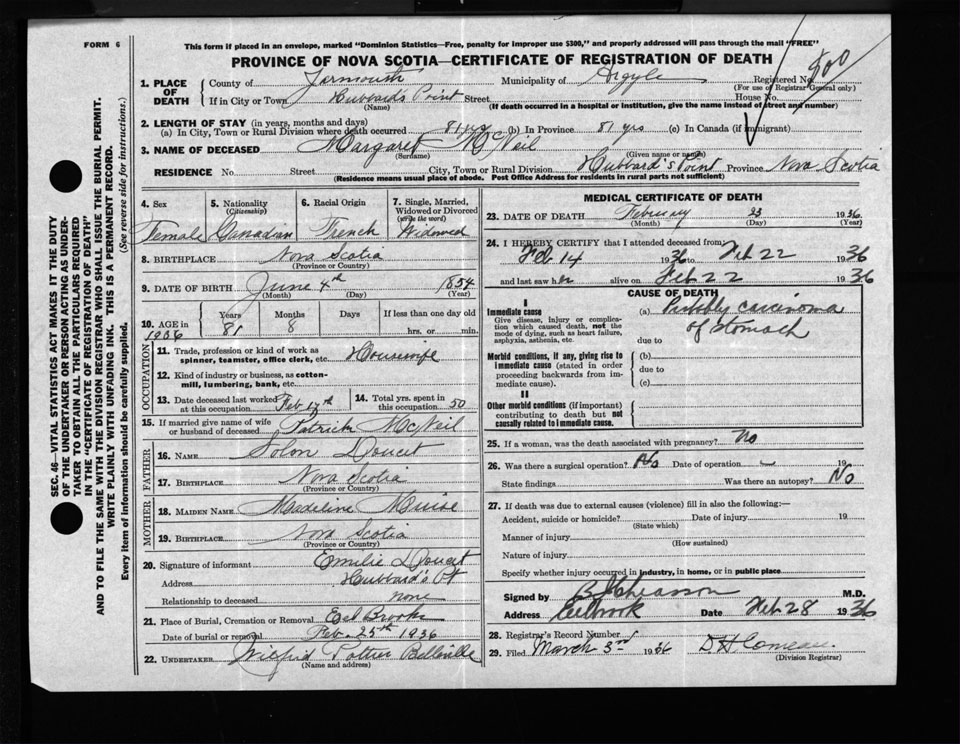 FORM 6
This form if placed in an envelope, marked "Dominion Statistics—Free, penalty for improper use $300," and properly addressed will pass through the mail "FREE"
PROVINCE OF NOVA SCOTIA—CERTIFICATE OF REGISTRATION OF DEATH
1. PLACE OF DEATH County of Yarmouth Municipality of Argyle Registered No.
(For use of Registrar General only)
500
If in City or Town Hubbards Point Street House No.
(Name) (If death occurred in a hospital or institution, give the name instead of street and number)
2. LENGTH OF STAY (in years, months and days)
(a) In City, Town or Rural Division where death occurred 81 yrs (b) In Province 81 yrs (c) In Canada (if immigrant)
3. NAME OF DECEASED Margaret McNeil
(Surname) (Given name or names)
RESIDENCE No. Street City, Town or Rural Division Hubbard's Point Province Nova Scotia
(Residence means usual place of abode. Post Office Address for residents in rural parts not sufficient)
SEC. 46—VITAL STATISTICS ACT MAKES IT THE DUTY
OF THE UNDERTAKER OR PERSON ACTING AS UNDER-
TAKER TO OBTAIN ALL THE PARTICULARS REQUIRED
IN THE "CERTIFICATE OF REGISTRATION OF DEATH"
AND TO FILE THE SAME WITH THE DIVISION REGISTRAR WHO SHALL ISSUE THE BURIAL PERMIT.
WRITE PLAINLY WITH UNFADING INK. THIS IS A PERMANENT RECORD.
Every item of information should be carefully supplied. (See reverse side for instructions.)
4. Sex 5. Nationality (Citizenship) 6. Racial Origin 7. Single, Married, Widowed or Divorced (write the word)
Female Canadian French Widowed
8. BIRTHPLACE Nova Scotia
(Province or Country)
9. DATE OF BIRTH June 4th 1854
(Month) (Day) (Year)
10. AGE in 1936 Years Months Days If less than one day old
81 8 hrs. or min.
OCCUPATION
11. Trade, profession or kind of work as spinner, teamster, office clerk, etc. Housewife
12. Kind of industry or business, as cotton-mill, lumbering, bank, etc.
13. Date deceased last worked at this occupation Feb 17th 14. Total yrs. spent in this occupation. 50
15. If married give name of wife or husband of deceased Patrick McNeil
FATHER
16. NAME Solon Doucet
17. BIRTHPLACE Nova Scotia
(Province or Country)
MOTHER
18. MAIDEN NAME Madeline Muise
19. BIRTHPLACE Nova Scotia
(Province or Country)
20. Signature of informant Emilie Doucet
Address Hubbard's Pt
Relationship to deceased none
21. Place of Burial, Cremation or Removal Eel Brook
Date of burial or removal Feb. 25th 1936
22. UNDERTAKER Wilfrid Pottier Belleville
(Name and address)
MEDICAL CERTIFICATE OF DEATH
23. DATE OF DEATH February 23 1936
(Month) (Day) (Year)
24. I HEREBY CERTIFY that I attended deceased from:
Feb 14 1936 to Feb 22 1936
and last saw her alive on Feb 22 1936
CAUSE OF DEATH
I
Immediate cause
Give disease, injury or complication which caused death, not the mode of dying, such as heart failure, asphyxia, asthenia, etc.
(a) Probably carcinoma
of stomach
due to
Morbid conditions, if any, giving rise to immediate cause (stated in order proceeding backwards from immediate cause).
(b)
due to
(c)
II
Other morbid conditions (if important) contributing to death but not causally related to immediate cause.
25. If a woman, was the death associated with pregnancy? No
26. Was there a surgical operation? No Date of operation 19
State findings Was there an autopsy? No
27. If death was due to external causes (violence) fill in also the following:—
Accident, suicide or homicide? Date of injury 19
(State which)
Manner of injury
(How sustained)
Nature of injury
Specify whether injury occurred in industry, in home, or in public place
Signed by Chiasson M.D.
Address Eelbrook Date Feb 28 1936
28. Registrar's Record Number
29. Filed March 3rd 1936 D. H. Comeau.
(Division Registrar)